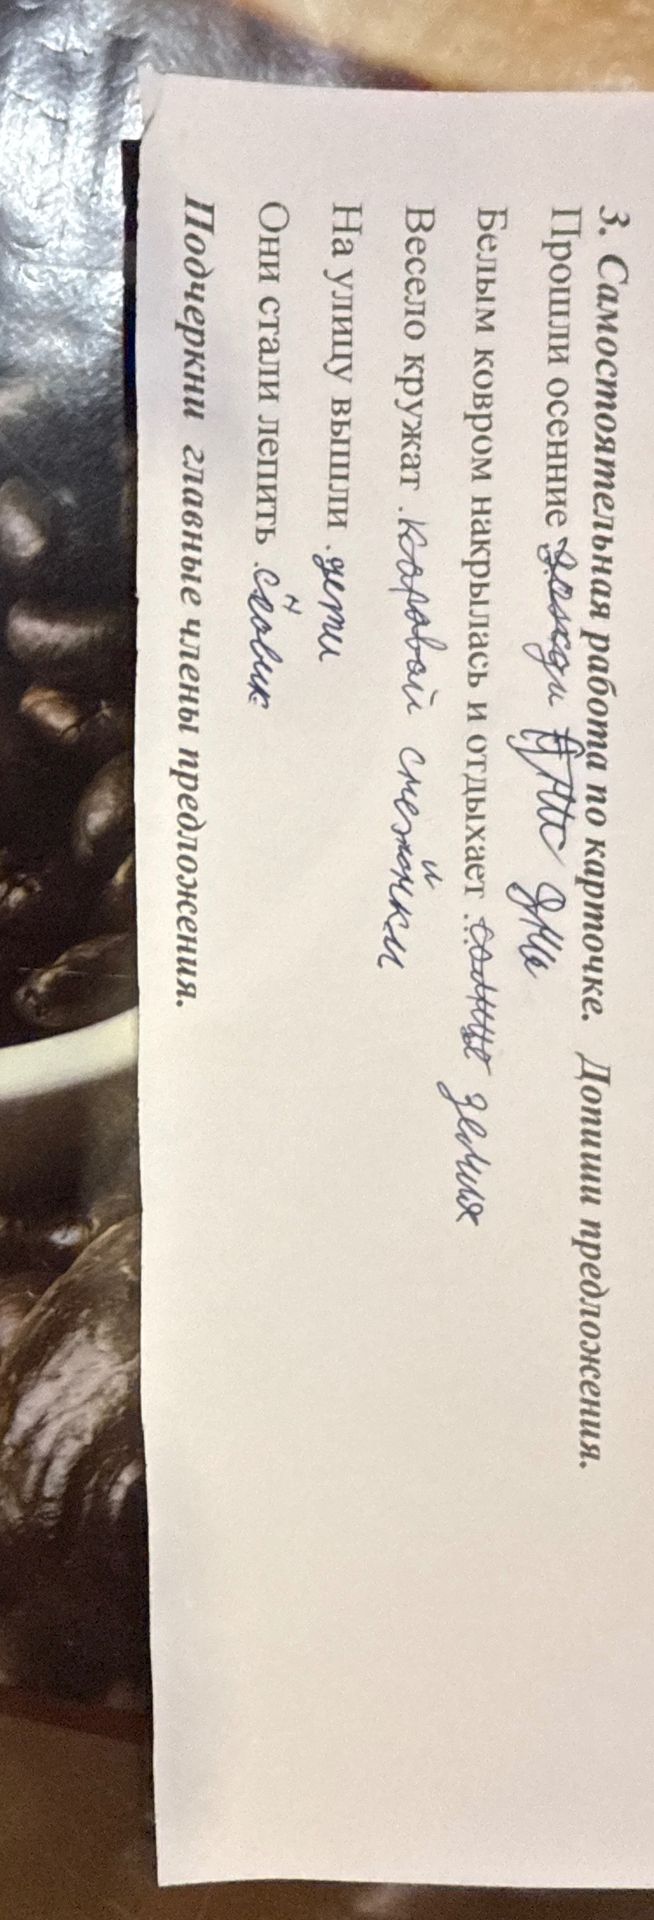 3. Самостоятельная работа по карточке. Допиши предложения.
Прошли осенние дожди дни
Белым ковром накрылась и отдыхает ... солнце земля
Весело кружат .коровой снежинки
На улицу вышли .дети
Они стали лепить .снеовик
Подчеркни главные члены предложения.